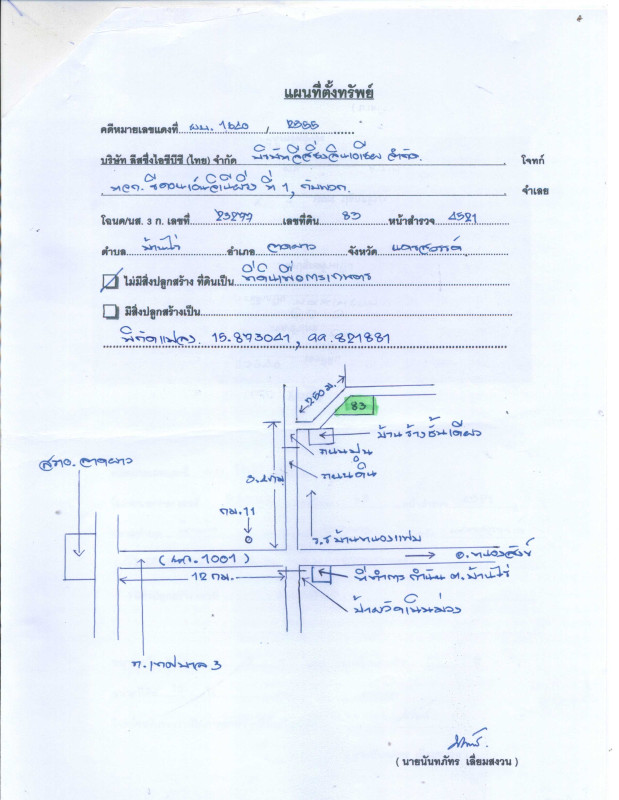 แผนที่ตั้งทรัพย์
คดีหมายเลขแดงที่ ผบ. 1620 / 2555
บริษัท ลีสซิ่งไอซีบีซี (ไทย) จำกัด โจทก์
ที่ 1, กับพวก จำเลย
โฉนด/นส. 3 ก. เลขที่ 23277 เลขที่ดิน 83 หน้าสำรวจ 4521
ตำบล บ้านไร่ อำเภอ ลาดยาว จังหวัด นครสวรรค์
ไม่มีสิ่งปลูกสร้าง ที่ดินเป็น ที่ดินเพื่อการเกษตร
มีสิ่งปลูกสร้างเป็น
พิกัดแปลง. 15.873041, 99.821881
250 ม.
83
บ้านร้างชั้นเดียว
ถนนปูน
ถนนดิน
สภอ. ลาดยาว
กม. 11
(ทล. 1001)
อ.หนองฉาง
12 กม.
ที่ทำการ กำนัน ต.บ้านไร่
ป้ายวัดเนินม่วง
ท.เทศบาล 3
(นายนันทภัทร เลี่ยมสงวน)